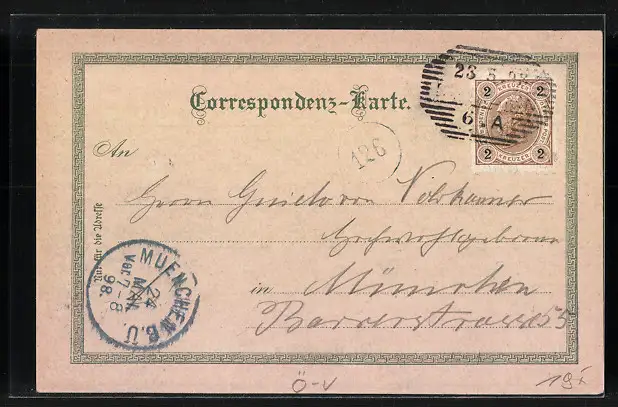 23.5.98
2 2
6.A
KREUZER
2 2
Correspondenz-Karte.
126
An
Herrn Guido von Volkhamer
Hochwohlgeboren
in München
Barrerstrasse 55
Nur für die Adresse
MUENCHEN B.U.
24
MAI
Vor.7-8
98.
Ö-V